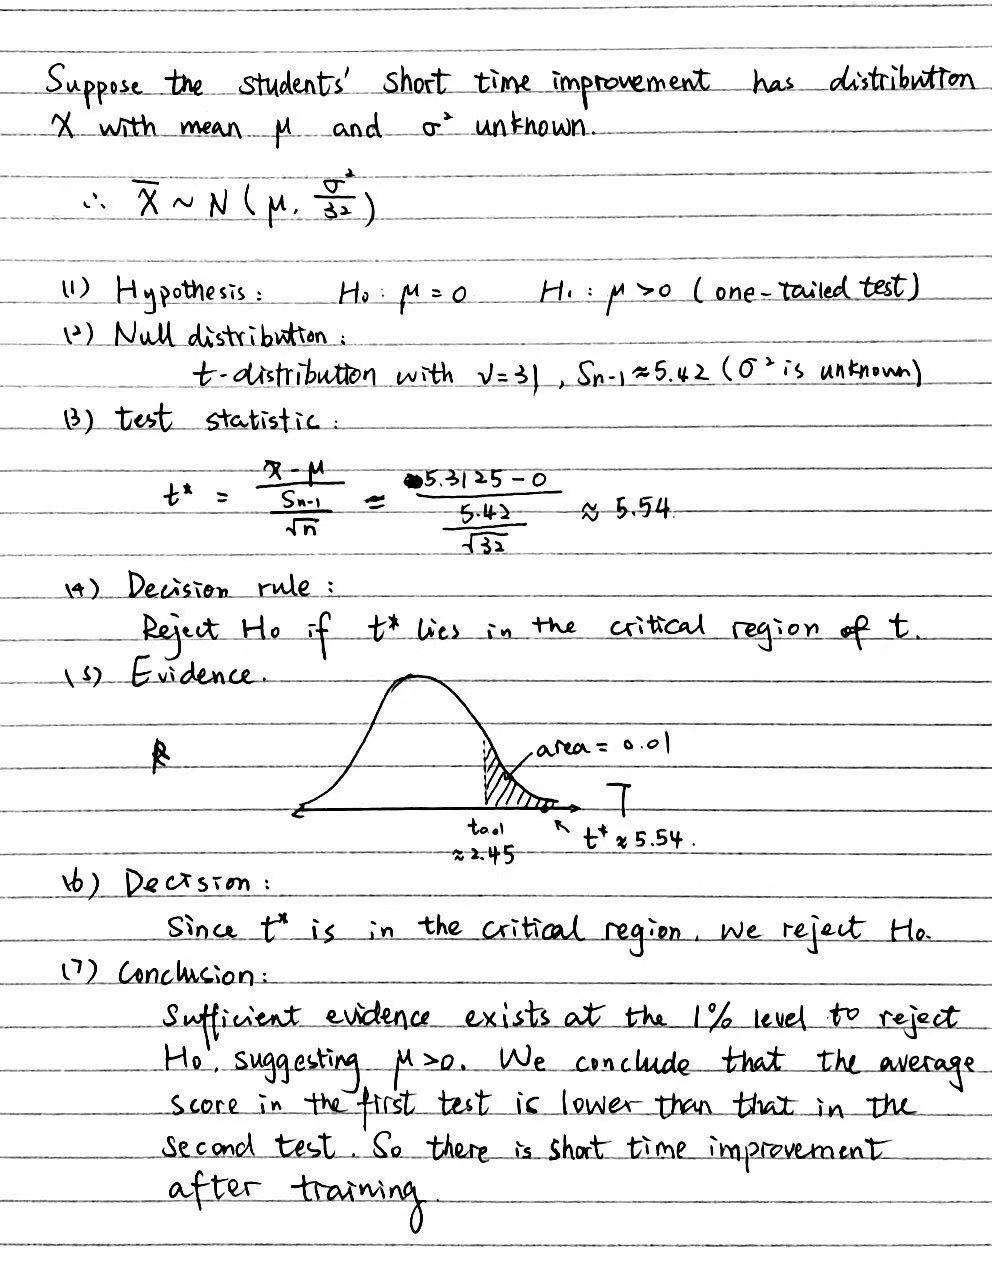 Suppose the students' short time improvement has distribution
X with mean μ and σ² unknown.
∴ X̄ ~ N(μ, σ²/32)
(1) Hypothesis: H₀: μ = 0 H₁: μ > 0 (one-tailed test)
(2) Null distribution:
t-distribution with ν=31, Sn-1 ≈ 5.42 (σ² is unknown)
(3) test statistic:
t* = (x̄ - μ)/(Sn-1/√n) = (5.3125 - 0)/(5.42/√32) ≈ 5.54.
(4) Decision rule:
Reject H₀ if t* lies in the critical region of t.
(5) Evidence.
area = 0.01
T
t0.01
≈ 2.45
t* ≈ 5.54.
(6) Decision:
Since t* is in the critical region, we reject H₀.
(7) Conclusion:
Sufficient evidence exists at the 1% level to reject
H₀, suggesting μ > 0. We conclude that the average
score in the first test is lower than that in the
second test. So there is short time improvement
after training.